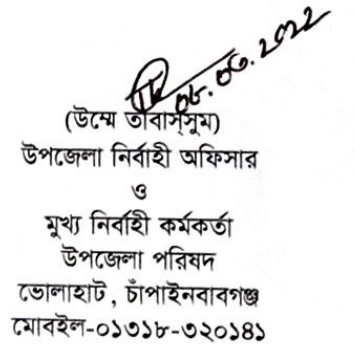 ০৮.০৬.২০২২
(উম্মে তাবাস্সুম)
উপজেলা নির্বাহী অফিসার
ও
মুখ্য নির্বাহী কর্মকর্তা
উপজেলা পরিষদ
ভোলাহাট, চাঁপাইনবাবগঞ্জ
মোবইল-০১৩১৮-৩২০১৪১